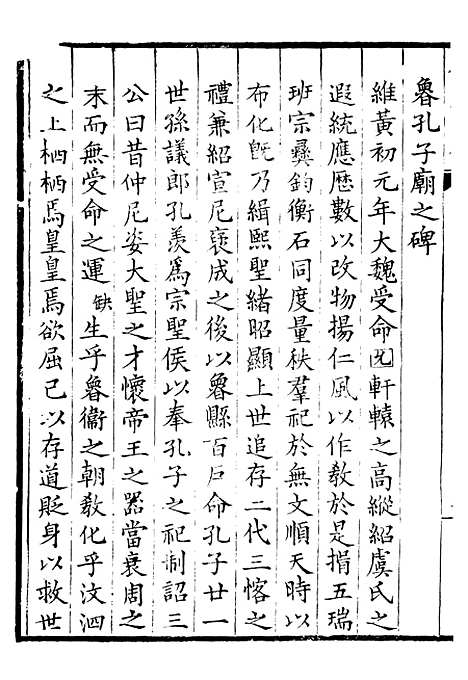 魯孔子廟之碑
維黃初元年大魏受命允軒轅之高縱紹虞氏之
遐統應歷數以改物揚仁風以作教於是揖五瑞
班宗彝鈞衡石同度量秩羣祀於無文順天時以
布化旣乃緝熙聖緒昭顯上世追存二代三愘之
禮兼紹宣尼襃成之後以魯縣百戶命孔子廿一
世孫議郎孔羨爲宗聖侯以奉孔子之祀制詔三
公曰昔仲尼姿大聖之才懷帝王之器當衰周之
末而無受命之運缺生乎魯衞之朝敎化乎汶泗
之上栖栖焉皇皇焉欲屈己以存道貶身以救世